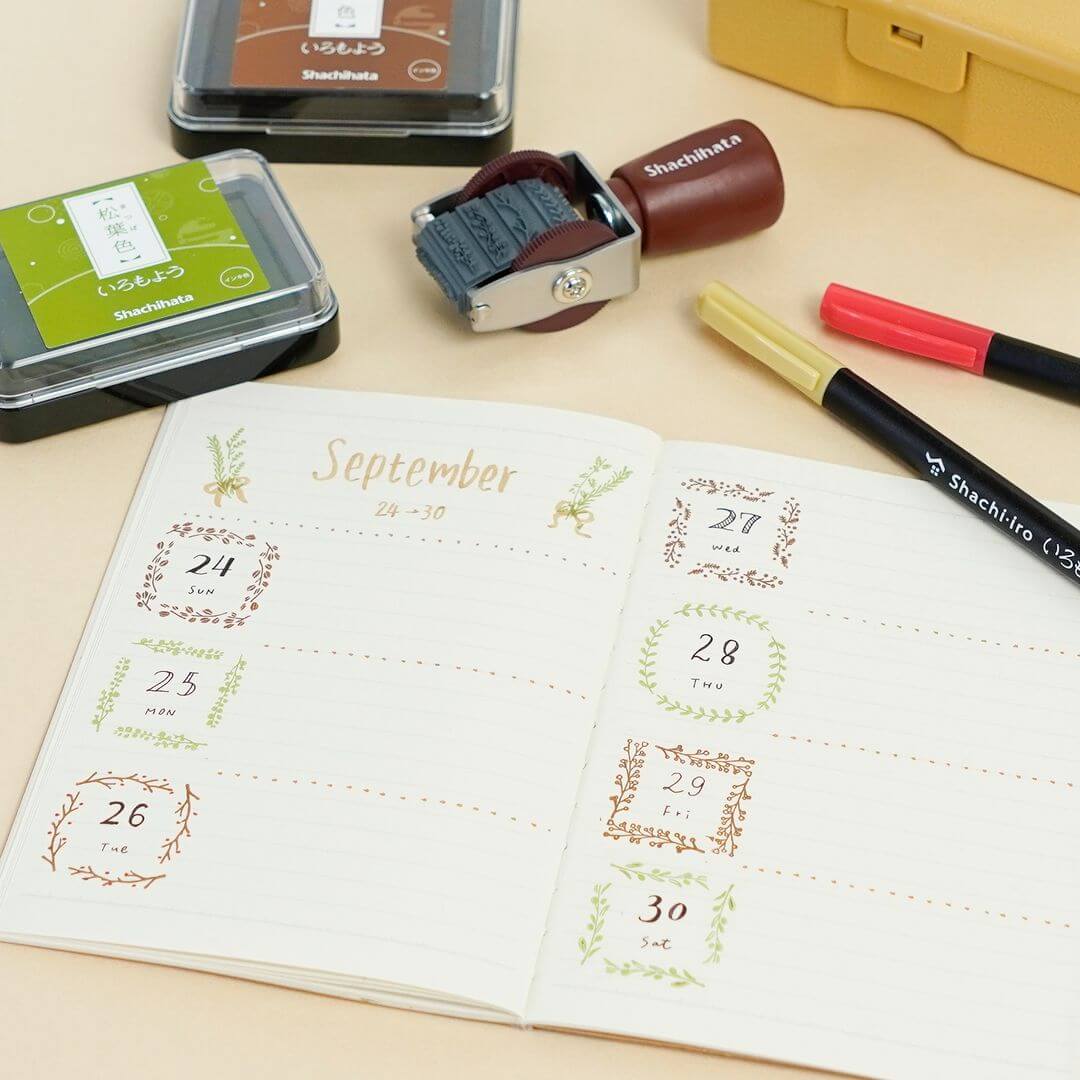 色】
いろもよう
Shachihata
インキ色
【松葉色】
まつば
いろもよう
インキ色
Shachihata
Shachihata
Shachi・iro いろも
September
24→30
24
SUN
25
MON
26
Tue
27
Wed
28
THU
29
Fri
30
Sat